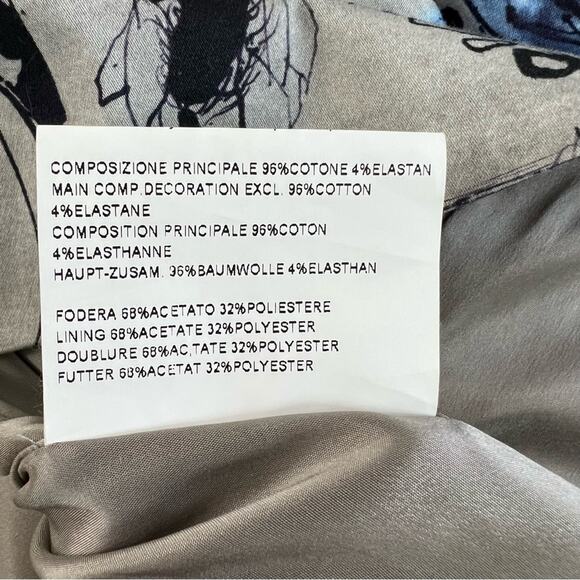 COMPOSIZIONE PRINCIPALE 96%COTONE 4%ELASTAN
MAIN COMP.DECORATION EXCL. 96%COTTON
4%ELASTANE
COMPOSITION PRINCIPALE 96%COTON
4%ELASTHANNE
HAUPT-ZUSAM. 96%BAUMWOLLE 4%ELASTHAN
FODERA 68%ACETATO 32%POLIESTERE
LINING 68%ACETATE 32%POLYESTER
DOUBLURE 68%AC,TATE 32%POLYESTER
FUTTER 68%ACETAT 32%POLYESTER